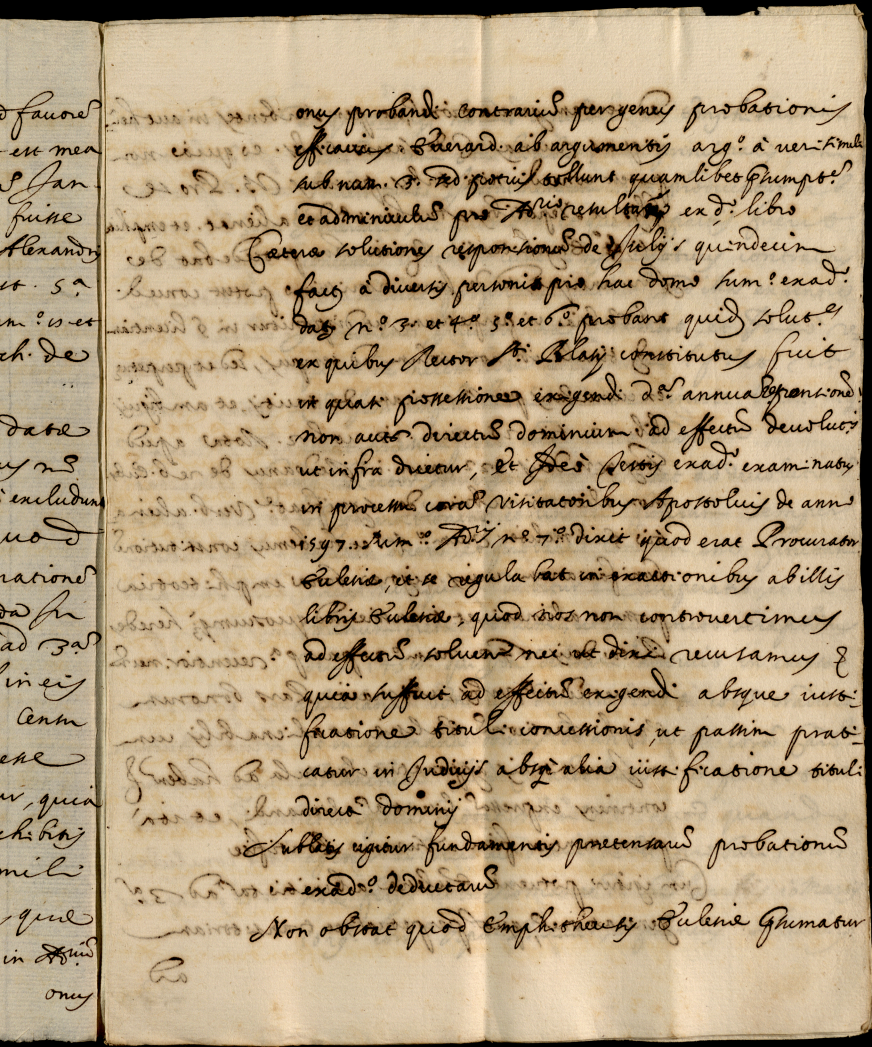 d favorē
est mea
Jan
fuisse
Alexandrj
st. 5.ª
m.º 15 et
ch. de
datæ
excludunt
uod
rationē
ad 3.ª
in eis
Censu
esse
ur, quia
chibitis
mili
que
in
onus
onus probandi contrariū per genus probationis
efficacius Euerard. ab argumentis arg.º à verisimili
sub num. 3. sed potius tollunt quamlibet p̄sumpt.ᵉ
et adminiculū pro resultans ex d.º libro
Cæteræ solutiones responsionū de Julijs quindecim
factæ à diversis personis pro hac domo sum.º ex ad.º
datis n.º 3.º et 4.º 5.º et 6.º probant quidē solut.ᵉˢ
ex quibus Rector S.ᵗⁱ Blasij constitutus fuit
in quasi possessione exigendi d.ᵃ annua responsionē
non autē directū dominium ad effectū devolutis
ut infra dicetur, et Idē testis ex ad.º examinatus
in processu corā Visitatoribus Apostolicis de anno
1597. sum.º n.º 7.º dixit quod erat Procurator
Ecclesiæ, et se regulabat in exactionibus ab illis
libris Ecclesiæ, quod nos non controvertimus
ad effectū solvendi nec ut dixi recusamus
quia suffuit ad effectū exigendi absque iusti:
ficatione tituli concessionis, ut passim prati:
catur in Judicijs absq; alia iustificatione tituli
directi dominij
Sublatis igitur fundamentis pretensarū probationū
ex ad.º deductarū
Non obstat quod Emphitheosis Ecclesiæ p̄sumatur